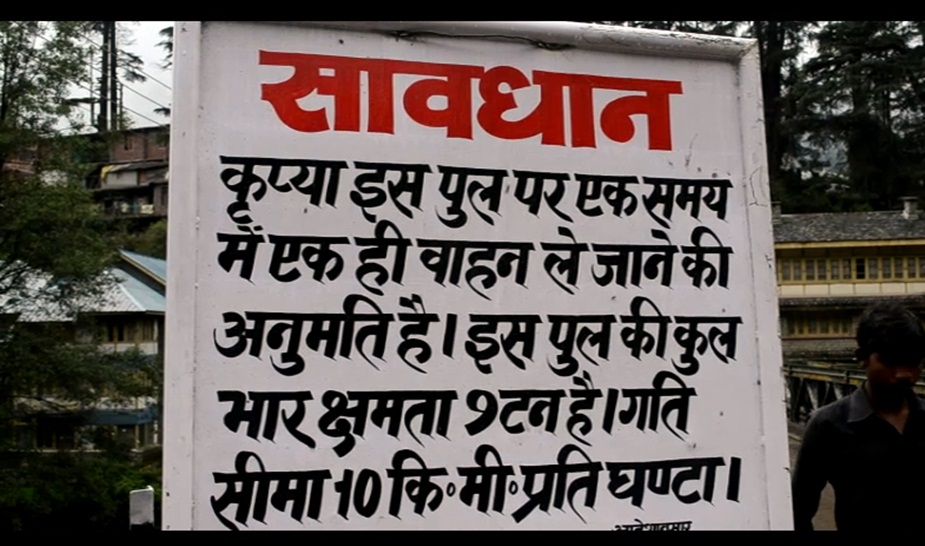 सावधान
कृप्या इस पुल पर एक समय
में एक ही वाहन ले जाने की
अनुमति है। इस पुल की कुल
भार क्षमता 9टन है। गति
सीमा 10 कि॰मी॰प्रति घण्टा।